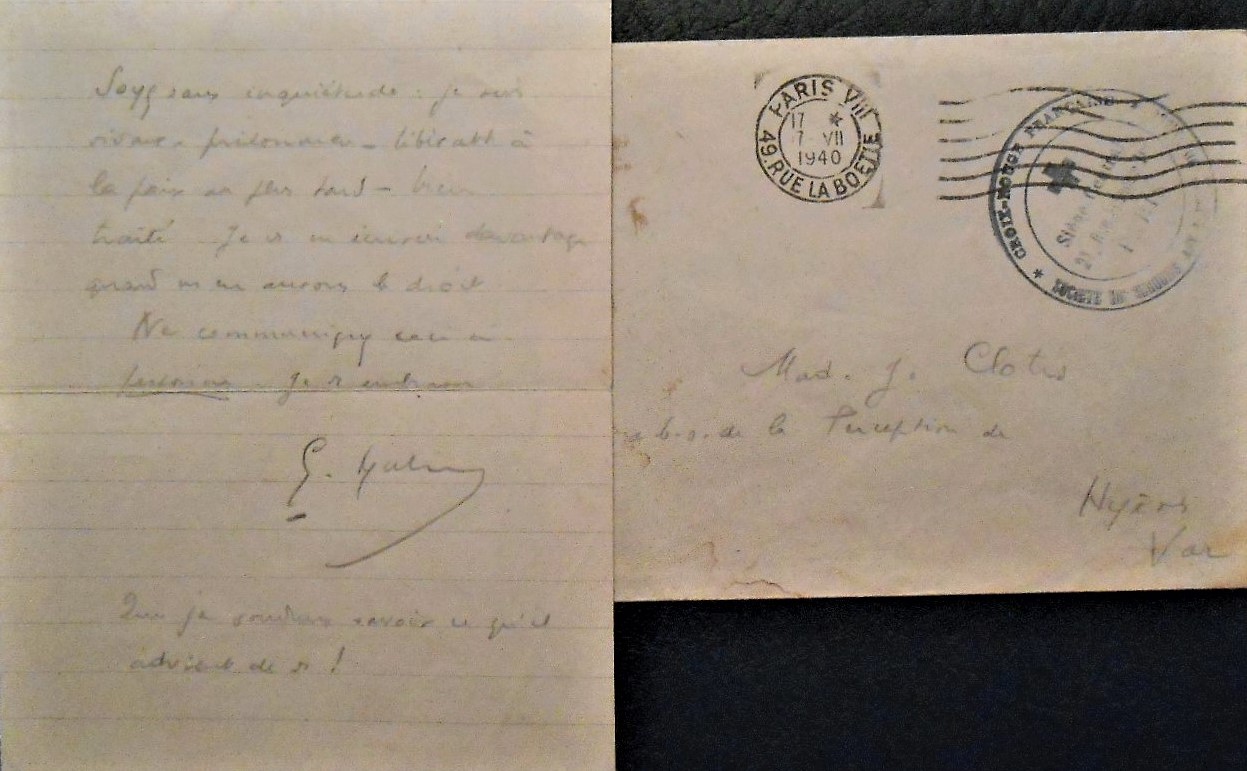 Soyez sans inquiétude : je suis
vivant, prisonnier – libérable à
la paix au plus tard – bien
traité. Je vs en écrirai davantage
quand ns en aurons le droit
Ne communiquez ceci à
personne. Je vs embrasse
G. Malraux
Que je voudrais savoir ce qu'il
advient de vs !
PARIS VIII
17 *
7 VII
1940
49. RUE LA BOETIE
* CROIX-ROUGE FRANÇAISE *
SOCIETE DE SECOURS AUX
Mad. J. Clotis
a b. s. de la Perception de
Hyères
Var